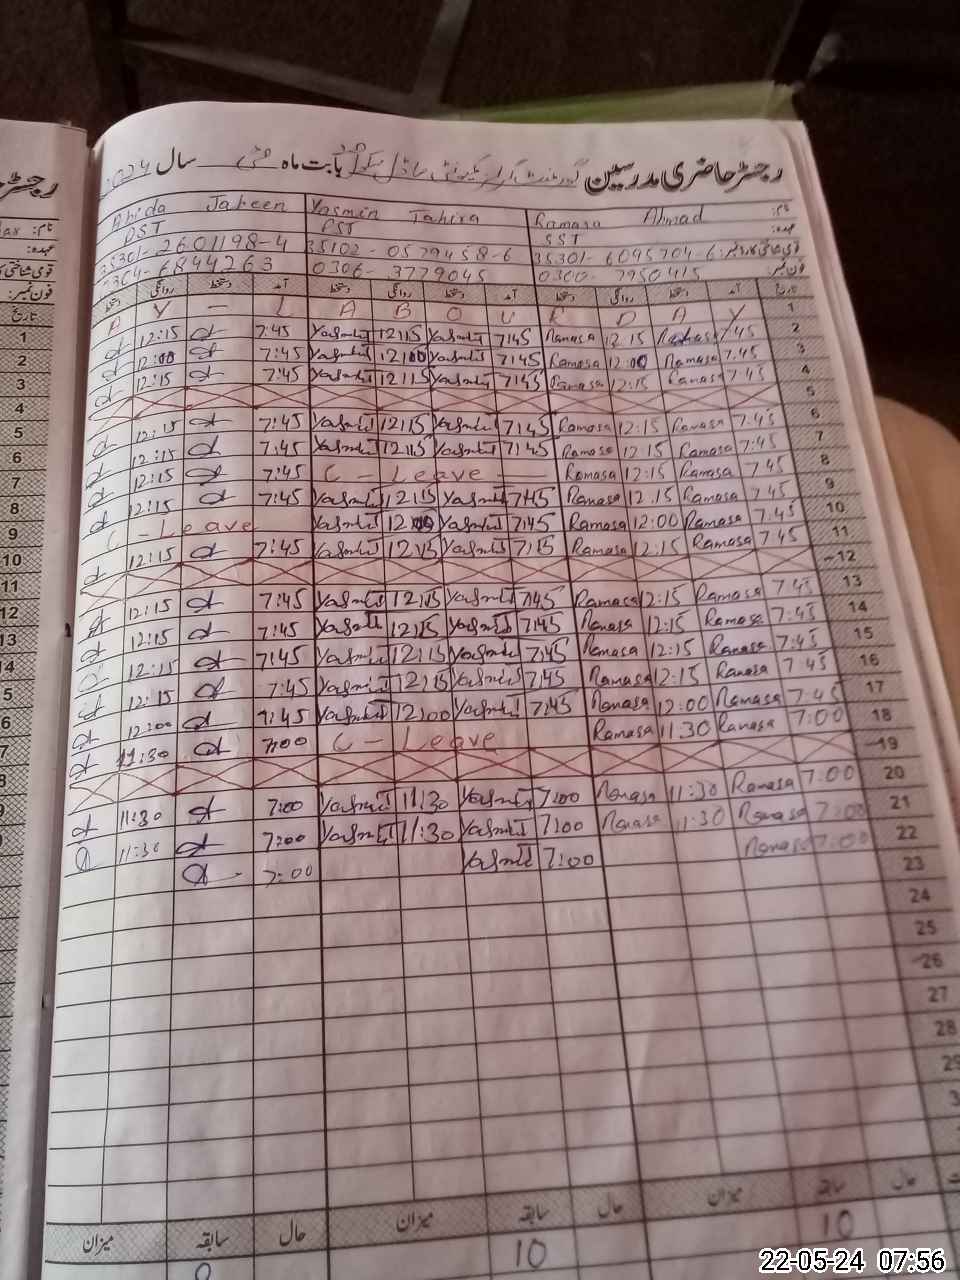 رجسٹر حاضری مدرسین گورنمنٹ گرلز کمیونٹی ماڈل سکول بابت ماہ مئی سال 2024
نام: Ramasa Ahmad Yasmin Tahira Abida
عہدہ: SST PST PST
قومی شناختی کارڈ نمبر: 35301-6095704-6 35102-0579458-6 35301-2601198-4
فون نمبر: 0300-7950415 0306-3779045 6844263
تاریخ آمد دستخط روانگی دستخط آمد دستخط روانگی دستخط آمد دستخط روانگی دستخط
1 L A B O U R D A Y
2 7:45 Ramasa 12:15 Ramasa 7:45 Yasmin 12:15 Yasmin 7:45 12:15
3 7:45 Ramasa 12:00 Ramasa 7:45 Yasmin 12:00 Yasmin 7:45 12:00
4 7:45 Ramasa 12:15 Ramasa 7:45 Yasmin 12:15 Yasmin 7:45 12:15
5
6 7:45 Ramasa 12:15 Ramasa 7:45 Yasmin 12:15 Yasmin 7:45 12:15
7 7:45 Ramasa 12:15 Ramasa 7:45 Yasmin 12:15 Yasmin 7:45 12:15
8 7:45 Ramasa 12:15 Ramasa C - Leave 7:45 12:15
9 7:45 Ramasa 12:15 Ramasa 7:45 Yasmin 12:15 Yasmin 7:45 12:15
10 7:45 Ramasa 12:00 Ramasa 7:45 Yasmin 12:00 Yasmin C - Leave
11 7:45 Ramasa 12:15 Ramasa 7:15 Yasmin 12:15 Yasmin 7:45 12:15
12
13 7:45 Ramasa 12:15 Ramasa 7:45 Yasmin 12:15 Yasmin 7:45 12:15
14 7:45 Ramasa 12:15 Ramasa 7:45 Yasmin 12:15 Yasmin 7:45 12:15
15 7:45 Ramasa 12:15 Ramasa 7:45 Yasmin 12:15 Yasmin 7:45 12:15
16 7:45 Ramasa 12:15 Ramasa 7:45 Yasmin 12:15 Yasmin 7:45 12:15
17 7:45 Ramasa 12:00 Ramasa 7:45 Yasmin 12:00 Yasmin 7:45 12:00
18 7:00 Ramasa 11:30 Ramasa C - Leave 7:00 11:30
19
20 7:00 Ramasa 11:30 Ramasa 7:00 Yasmin 11:30 Yasmin 7:00 11:30
21 7:00 Ramasa 11:30 Ramasa 7:00 Yasmin 11:30 Yasmin 7:00 11:30
22 7:00 Ramasa 7:00 Yasmin 7:00
23
24
25
26
27
28
29
حال سابقہ میزان حال سابقہ میزان حال سابقہ میزان
10 10
22-05-24 07:56